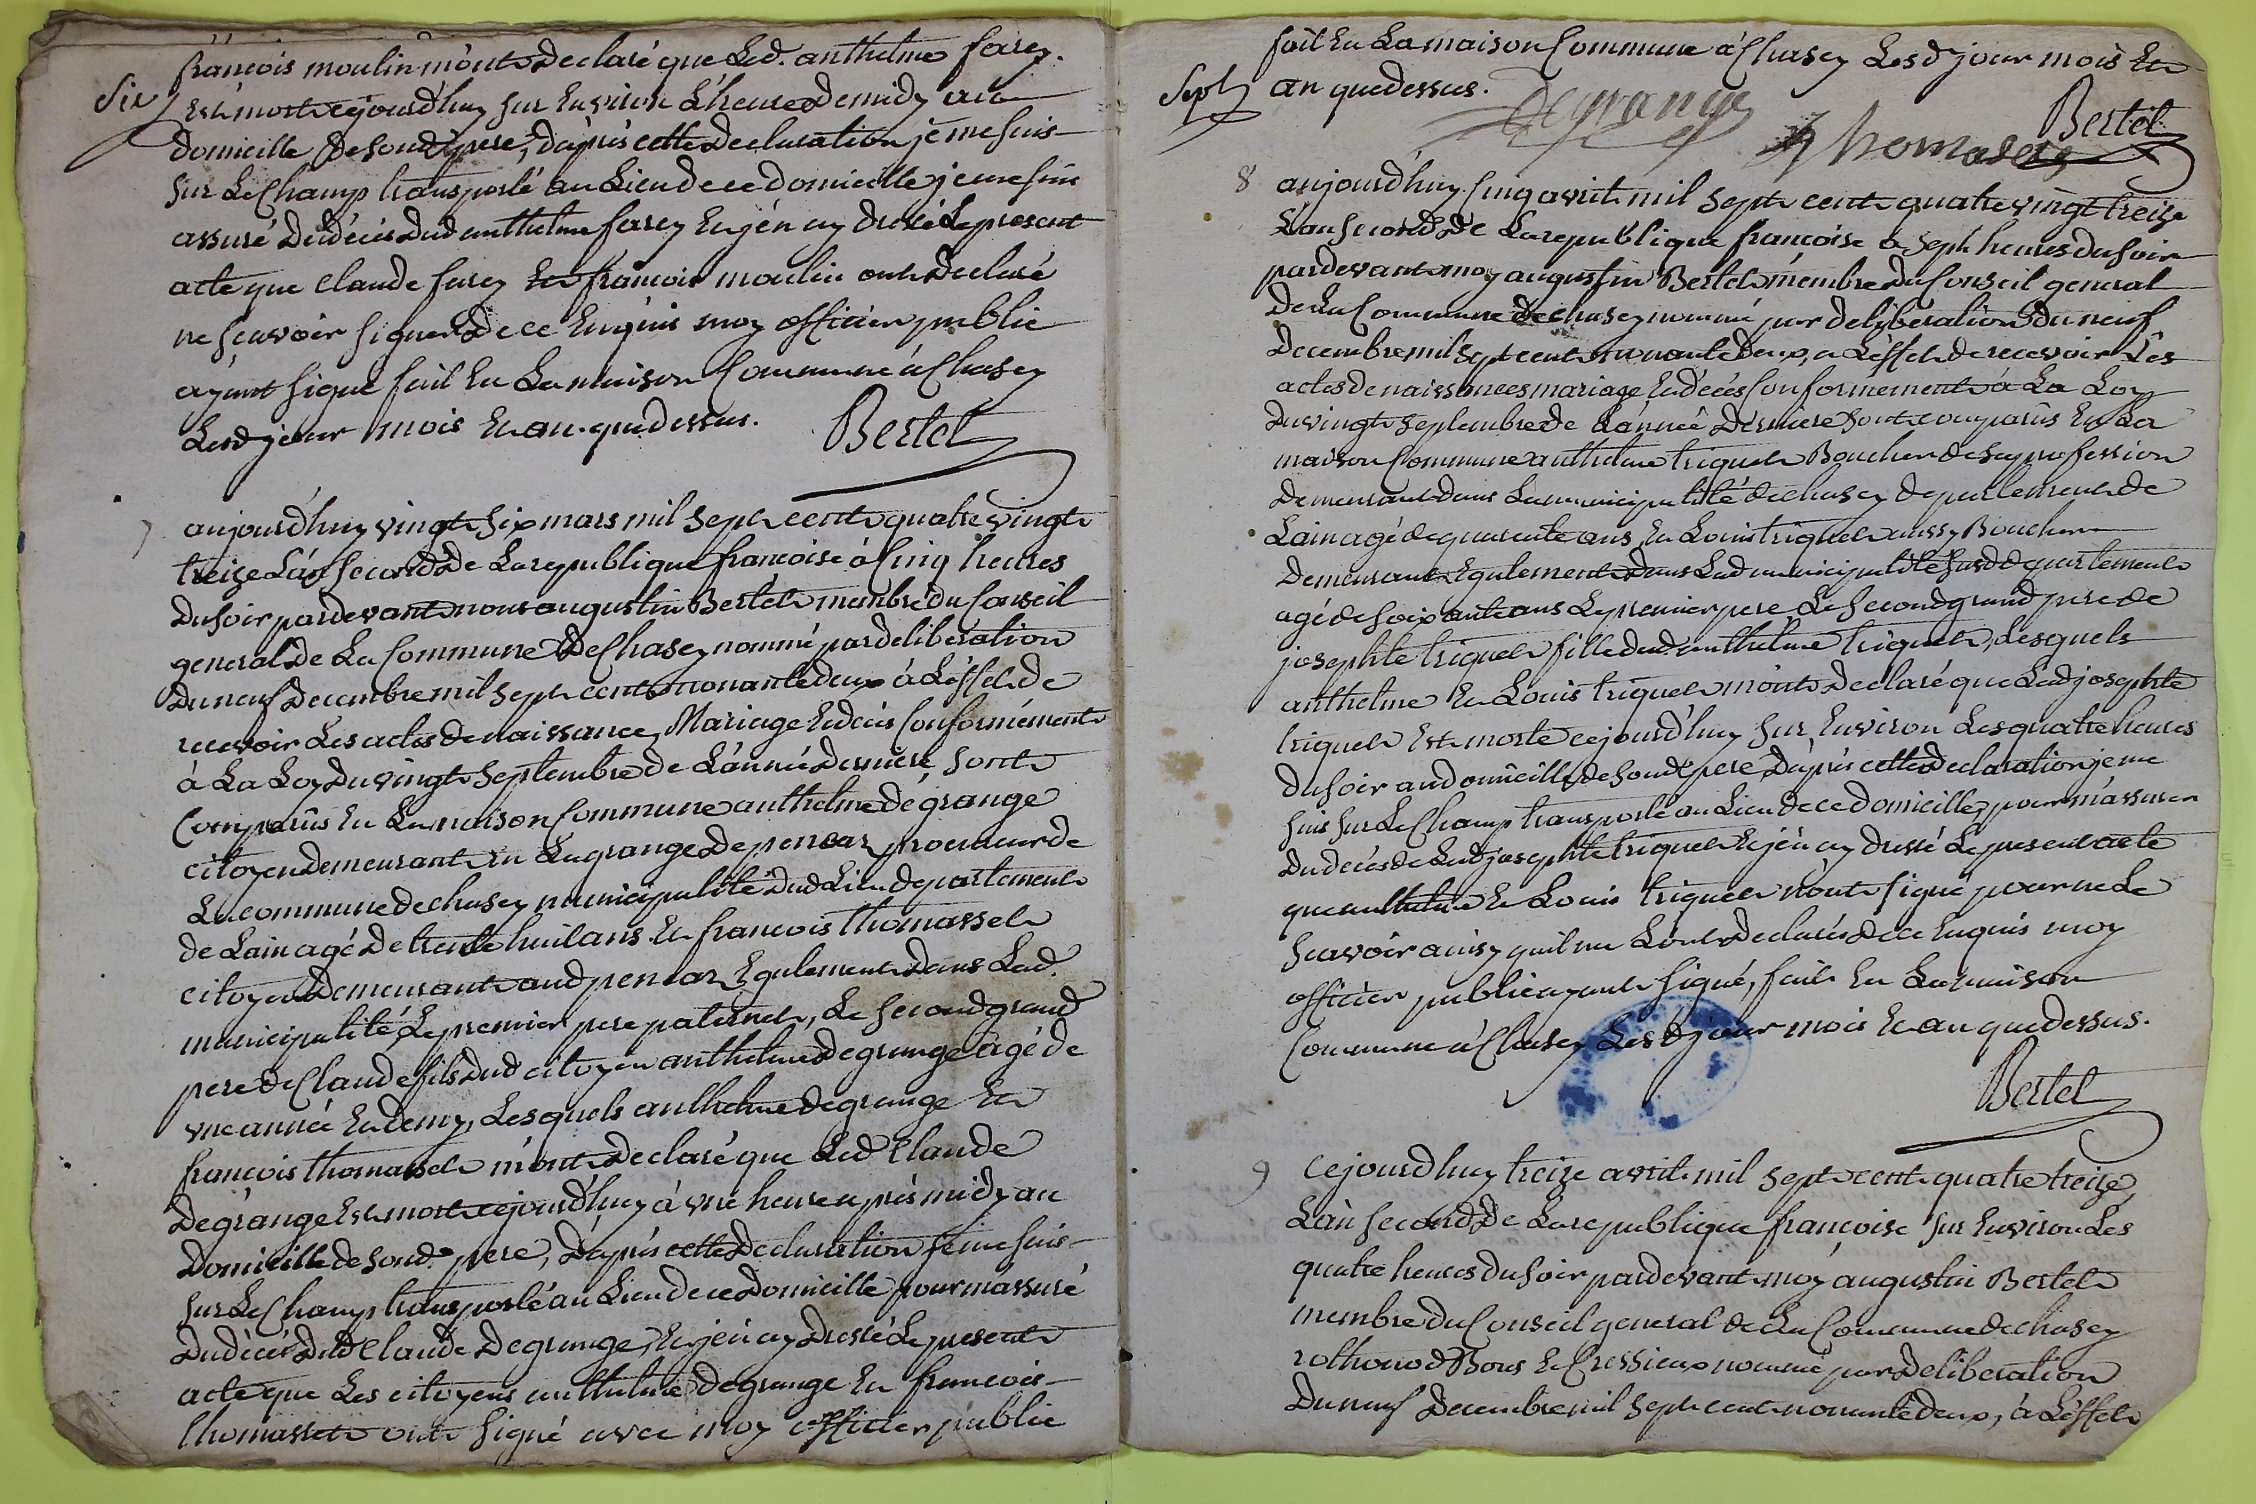 françois moulin m'ont declaré que Led. anthelme farey.
Six
Est mort cejourd'huy sur Environ L'heure de midy au
domicille de sond. pere, d'apris cette declaration je me suis
sur Le Champ transporté au Lieu de ce domicille je me suis
assuré du décès dud anthelme farey Et j'en ay dressé Le present
acte que Claude farey Et françois moulin ont declaré
ne scavoir signer de ce Enquis moy officier public
ayant signé fait En La maison Commune à Chasey
Lesd jour mois Et an que dessus. Bertet
7
aujourd'huy vingt six mars mil sept cent quatre vingt
treize L'an second de La republique françoise à Cinq heures
du soir pardevant nous augustin Bertet membre du Conseil
general de La Commune de Chasey nommé par deliberation
du neuf decembre mil sept cent nonante deux à L'effet de
recevoir Les actes de naissance, Mariage Et deces Conformément
à La Loy du vingt septembre de L'année derniere, sont
Comparûs En La maison Commune anthelme dégrange
citoyen demeurant en La grange de penear procureur de
La commune de chasey municipalité dud Lieu departement
de Lain agé de trente huit ans Et francois thomasset
citoyen demeurant aud penear Egalement dans Lad.
municipalité, Le premier pere paternel, Le second grand
pere de Claude fils dud citoyen anthelme degrange agé de
vne année Et demy, Lesquels anthelme degrange Et
francois thomasset m'ont declaré que Led Claude
degrange Est mort cejourd'huy à vne heure aprés midy au
domicille de sond. pere, D'aprìs cette declaration je me suis
sur Le Champ transporté au Lieu de ce domicille pour m'assuré
du décés dud Claude Degrange, Et j'en ay dressé Le present
acte que Les citoyens anthelme degrange Et francois
thomasset ont signé avec moy officier public
fait En La maison Commune à Chasey Lesd. jour mois Et
Sept
an que dessus.
Degrange
Bertet
thomasset
8
aujourd'huy Cinq avril mil sept cent quatre vingt treize
L'an second de La republique françoise à sept heures du soir
pardevant moy augustin Bertet membre du Conseil general
de La Commune de chasey nommé par deliberation du neuf
decembre mil sept cent nonante deux, a L'effet de recevoir Les
actes de naissances mariage Et décès Conformement à La Loy
du vingt septembre de L'année derniere sont comparus En La
maison Commune anthelme triquet Boucher de sa profession
demeurant dans La municipalité de chasey departement de
Lain agé de quarante ans, Et Louis triquet aussy Boucher
demeurant Egalement dans Lad municipalité susd departement
agé de soixante ans Le premier pere Le second grand pere de
josephte triquet fille dud. anthelme triquet, Lesquels
anthelme Et Louis triquet m'ont declaré que Lad josephte
triquet Est morte cejourd'huy sur Environ Les quatre heures
du soir au domicille de sond pere, D'apris cette declaration je me
suis sur Le Champ transporté au Lieu de ce domicille, pour m'assurer
du deces de Lad josephte triquet Et j'en ay dressé Le present acte
que anthelme Et Louis triquet n'ont signé pour ne Le
scavoir ainsy qu'il me L'ont declarés de ce Enquis moy
officier public ayant signé, fait En La maison
Commune à Chasey Lesd jour mois Et an que dessus.
Bertet
9
Cejourd'huy treize avril mil sept cent quatre treize,
L'an second de La republique françoise sur Environ Les
quatre heures du soir pardevant moy augustin Bertet
membre du Conseil general de La Commune de chasey
rothonod Bons Et Cressieux nommé par deliberation
du neuf decembre mil sept cent nonante deux, à L'effet